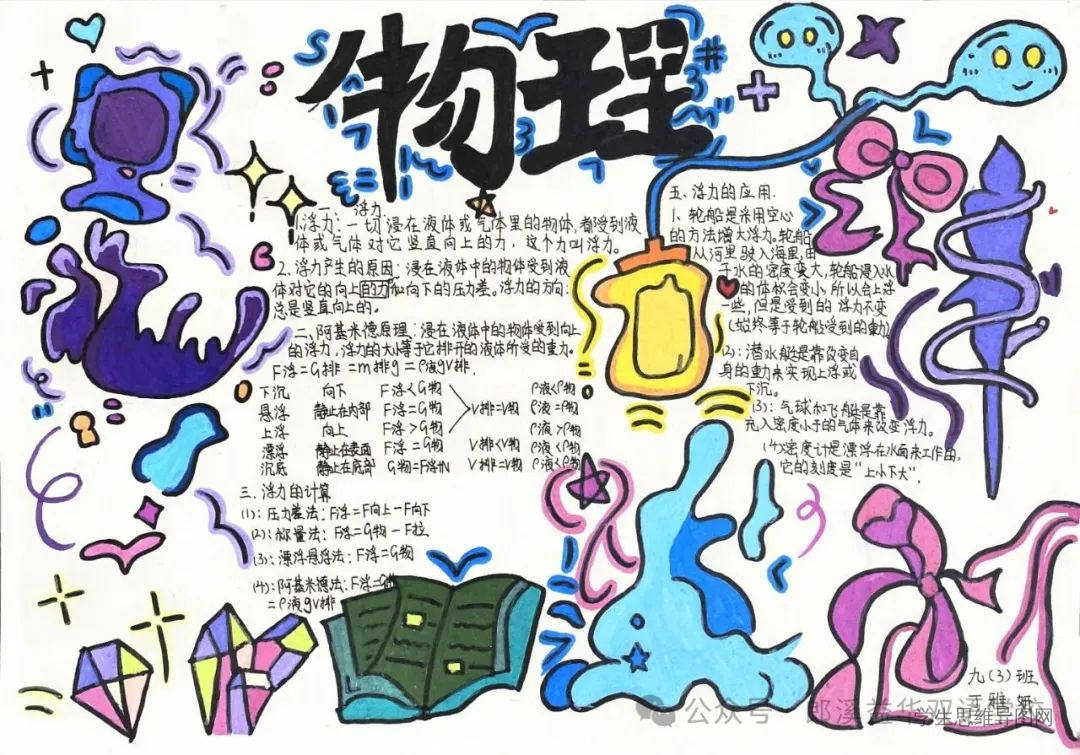 物理
一、浮力
1.浮力：一切浸在液体或气体里的物体，都受到液
体或气体对它竖直向上的力，这个力叫浮力。
2.浮力产生的原因：浸在液体中的物体受到液
体对它的向上的力和向下的压力差。浮力的方向：
总是竖直向上的。
二、阿基米德原理：浸在液体中的物体受到向上
的浮力，浮力的大小等于它排开的液体所受的重力。
F浮=G排=m排g=ρ液gV排.
下沉 向下 F浮<G物 ρ液<ρ物
悬浮 静止在内部 F浮=G物 V排=V物 ρ液=ρ物
上浮 向上 F浮>G物 ρ液>ρ物
漂浮 静止在表面 F浮=G物 V排<V物 ρ液<ρ物
沉底 静止在底部 G物=F浮+N V排=V物 ρ液<ρ物
三、浮力的计算
(1)：压力差法：F浮=F向上-F向下
(2)：称量法：F浮=G物-F拉
(3)：漂浮悬浮法：F浮=G物
(4)：阿基米德法：F浮=G排
=ρ液gV排
五、浮力的应用.
1、轮船是采用空心
的方法增大浮力。轮船
从河里驶入海里，由
于水的密度变大，轮船浸入水
的体积会变小，所以会上浮
一些，但是受到的浮力不变
(始终等于轮船受到的重力)
(2)：潜水艇是靠改变自
身的重力来实现上浮或
下沉。
(3)：气球和飞艇是靠
充入密度小于的气体来改变浮力。
(4)密度计是漂浮在水面来工作的，
它的刻度是“上小下大”.
九(3)班
雅
公众号 郎溪益华双语学校
学生思维导图网